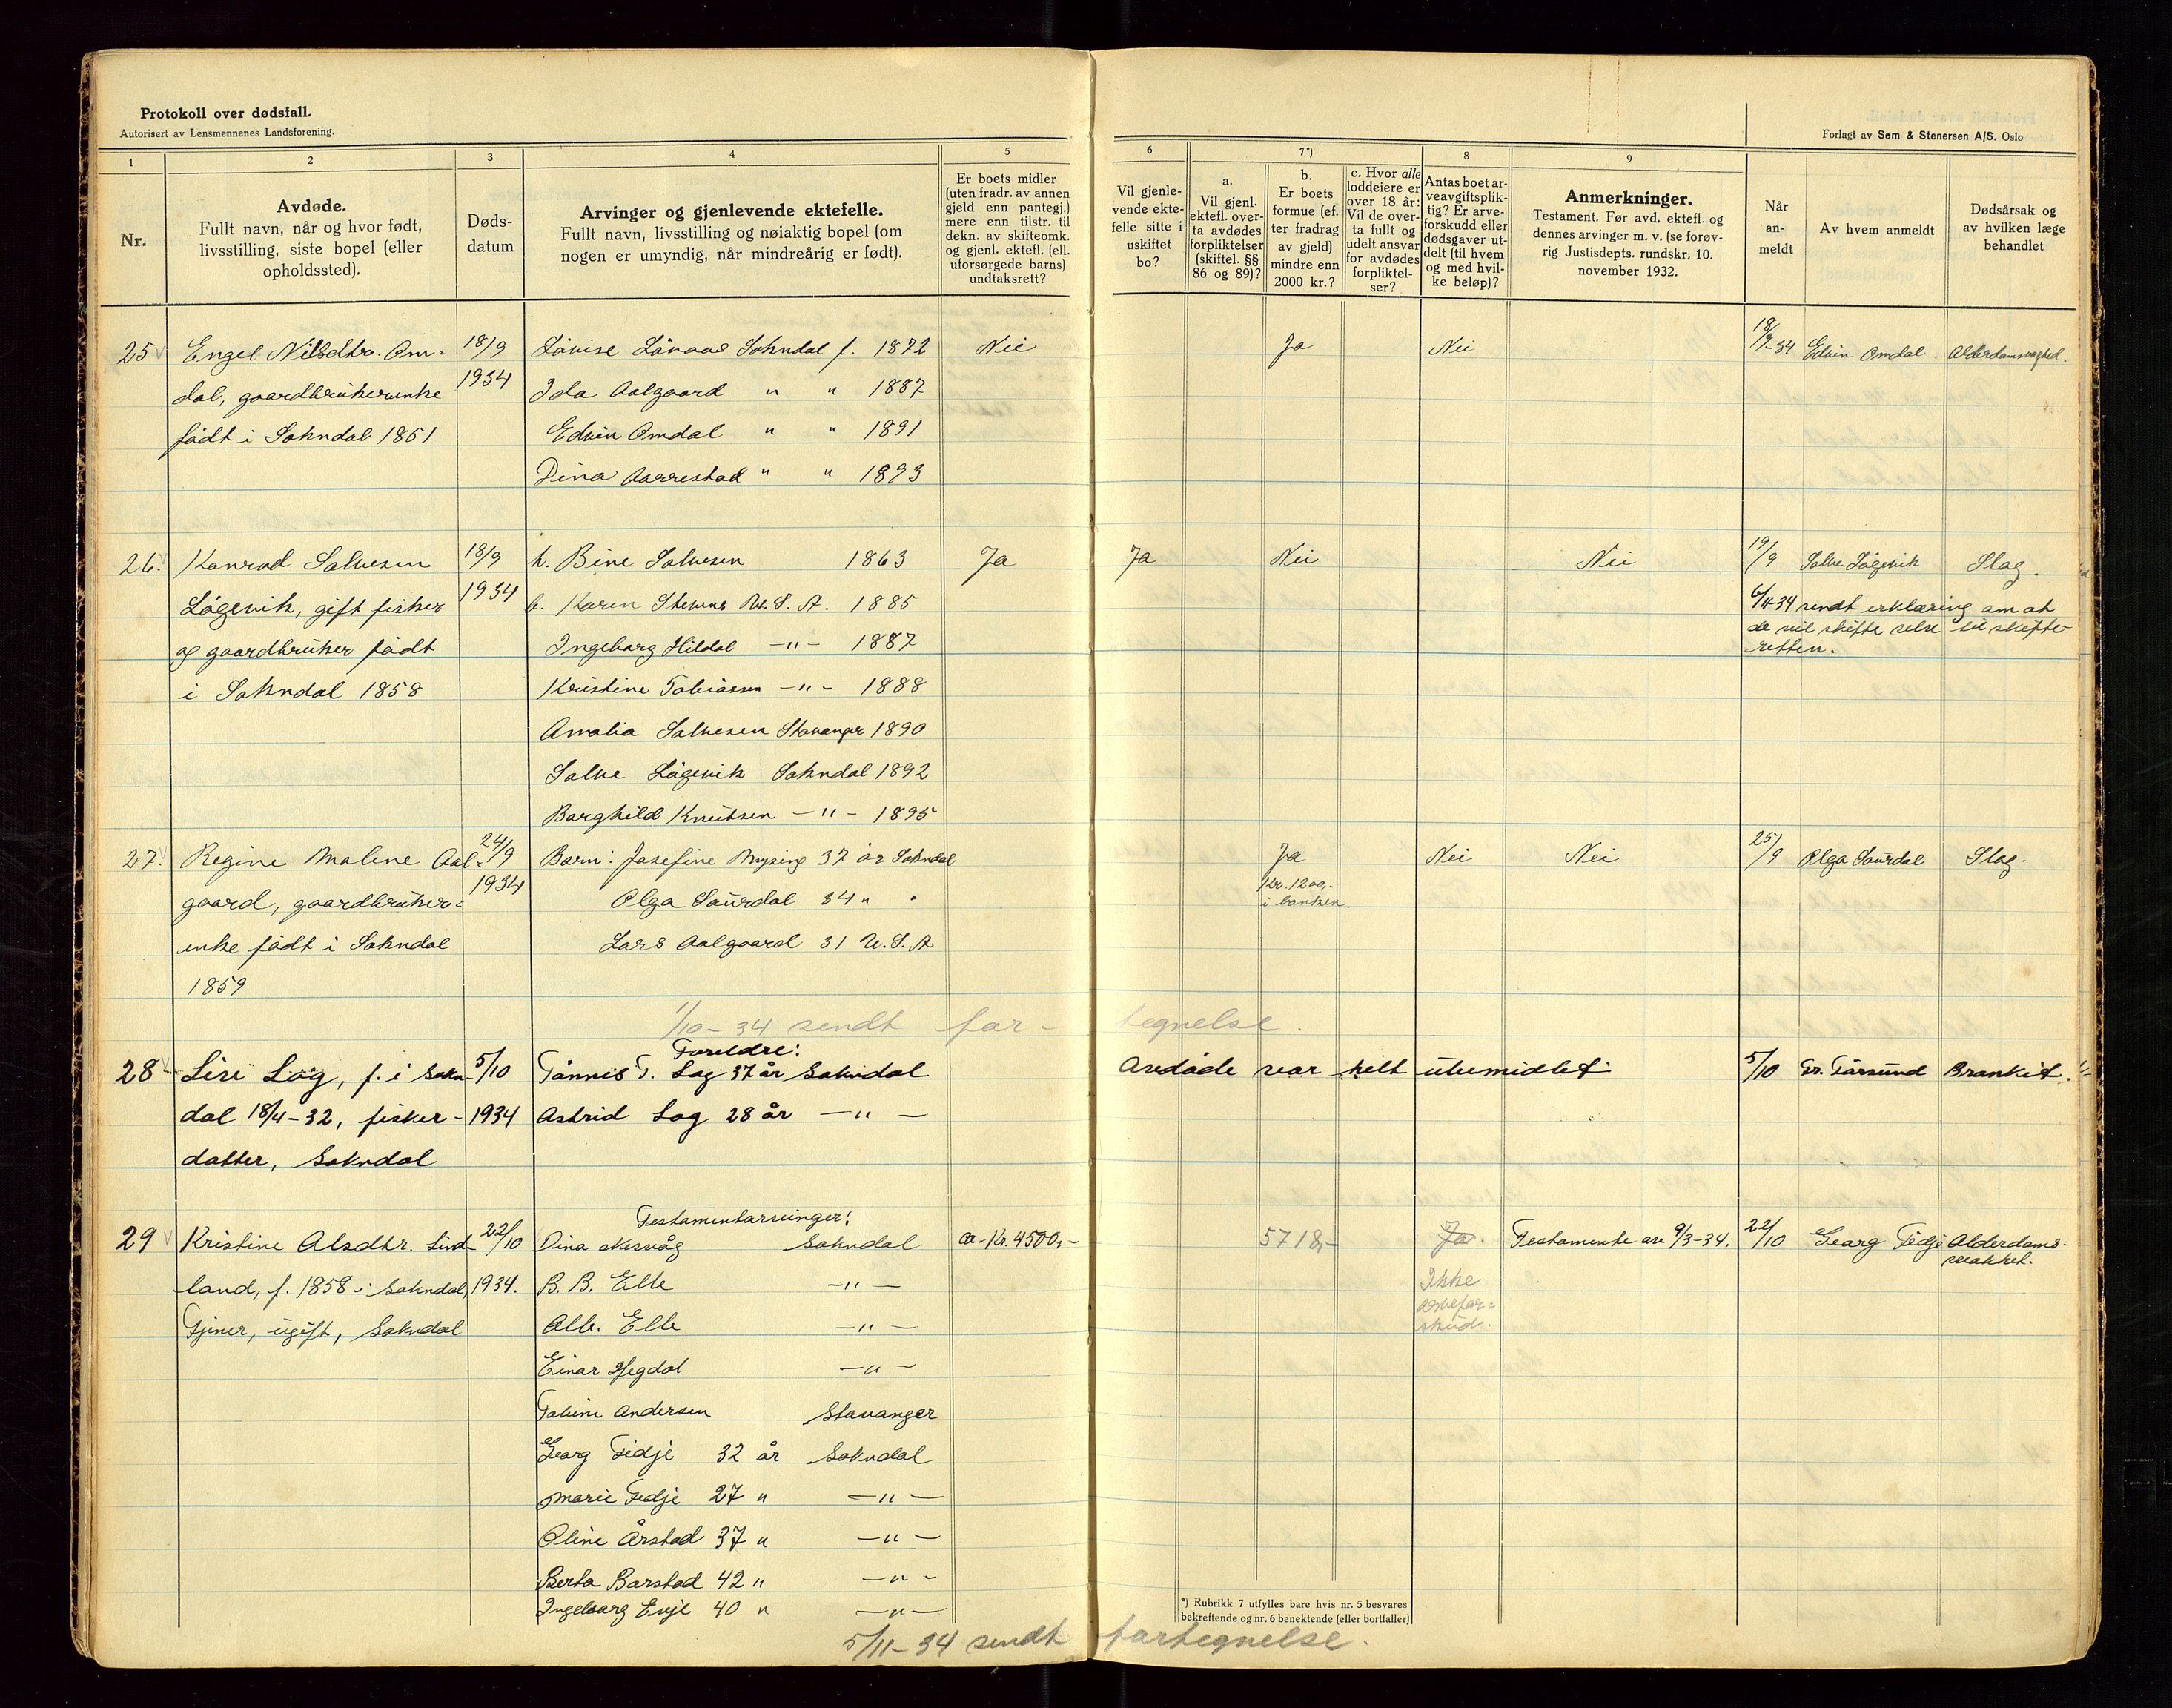 Protokoll over dødsfall.
Autorisert av Lensmennenes Landsforening.
Forlagt av Sem & Stenersen A/S. Oslo
1
2
3
4
5
6
7*)
8
9
Nr.
Avdøde.
Fullt navn, når og hvor født,
livsstilling, siste bopel (eller
opholdssted).
Døds-
datum
Arvinger og gjenlevende ektefelle.
Fullt navn, livsstilling og nøiaktig bopel (om
nogen er umyndig, når mindreårig er født).
Er boets midler
(uten fradr. av annen
gjeld enn pantegj.)
mere enn tilstr. til
dekn. av skifteomk.
og gjenl. ektefl. (ell.
uforsørgede barns)
undtaksrett?
Vil gjenle-
vende ekte-
felle sitte i
uskiftet
bo?
a.
Vil gjenl.
ektefl. over-
ta avdødes
forpliktelser
(skiftel. §§
86 og 89)?
b.
Er boets
formue (ef-
ter fradrag
av gjeld)
mindre enn
2000 kr.?
c. Hvor alle
loddeiere er
over 18 år:
Vil de over-
ta fullt og
udelt ansvar
for avdødes
forpliktel-
ser?
Antas boet ar-
veavgiftsplik-
tig? Er arve-
forskudd eller
dødsgaver ut-
delt (til hvem
og med hvil-
ke beløp)?
Anmerkninger.
Testament. Før avd. ektefl. og
dennes arvinger m. v. (se forøv-
rig Justisdepts. rundskr. 10.
november 1932.
Når
an-
meldt
Av hvem anmeldt
Dødsårsak og
av hvilken læge
behandlet
25 Engel Nilsdtr. Om- 18/9 Lovise Lånaas Sokndal f. 1872 Nei Ja Nei 18/9-34 Edvin Omdal Alderdomsvaghed.
dal, gaardbrukerenke 1934 Ida Aalgaard " " 1887
født i Sokndal 1851 Edvin Omdal " " 1891
Dina Aarrestad " " 1893
26. Konrad Salvesen 18/9 h. Bine Salvesen 1863 Ja Ja Nei Nei 19/9 Salve Lågevik Slag.
Lågevik, gift fisker 1934 b. Karen Stevens U.S.A. 1885 6/11-34 sendt erklæring om at
og gaardbruker født Ingeborg Hildal -"- 1887 de vil skifte selv til skifte-
retten.
i Sokndal 1858 Kristine Tobiassen -"- 1888
Amalia Salvesen Stavanger 1890
Salve Lågevik Sokndal 1892
Borghild Knutsen -"- 1895
27. Regine Malene Aal- 24/9 Barn: Josefine Mysing 37 år Sokndal Ja Nei Nei 25/9 Olga Saurdal Slag.
gaard, gaardbruker- 1934 Olga Saurdal 34 " " Kr. 1200,-
i banken.
enke født i Sokndal Lars Aalgaard 31 U.S.A
1859
1/10-34 sendt for- tegnelse.
Foreldre:
28 Siri Log, f. i Sokn- 5/10 Tønnes T. Log 37 år Sokndal Avdøde var helt ubemidlet. 5/10 Dr. Tørsund Bronkit.
dal 18/4-32, fisker- 1934 Astrid Log 28 år -"-
datter, Sokndal
Testamentarvinger:
29 Kristine Alsdtr. Lind- 22/10 Dina Nesvåg Sokndal ca. Kr. 4500,- 5718,- Ja. Testamente av 9/3-34. 22/10 Georg Tedje Alderdoms-
svakhet.
land, f. 1858 i Sokndal, 1934. B. B. Elle -"- Ikke
arvefor-
skud.
Tjener, ugift, Sokndal Alb. Elle -"-
Einar Hegdal -"-
Tobine Andersen Stavanger
Georg Tedje 32 år Sokndal
Marie Tedje 27 " -"-
Oline Årstad 37 " -"-
Berta Barstad 42 " -"-
Ingeborg Evje 40 " -"-
*) Rubrikk 7 utfylles bare hvis nr. 5 besvares
bekreftende og nr. 6 benektende (eller bortfaller)
5/11-34 sendt fortegnelse.